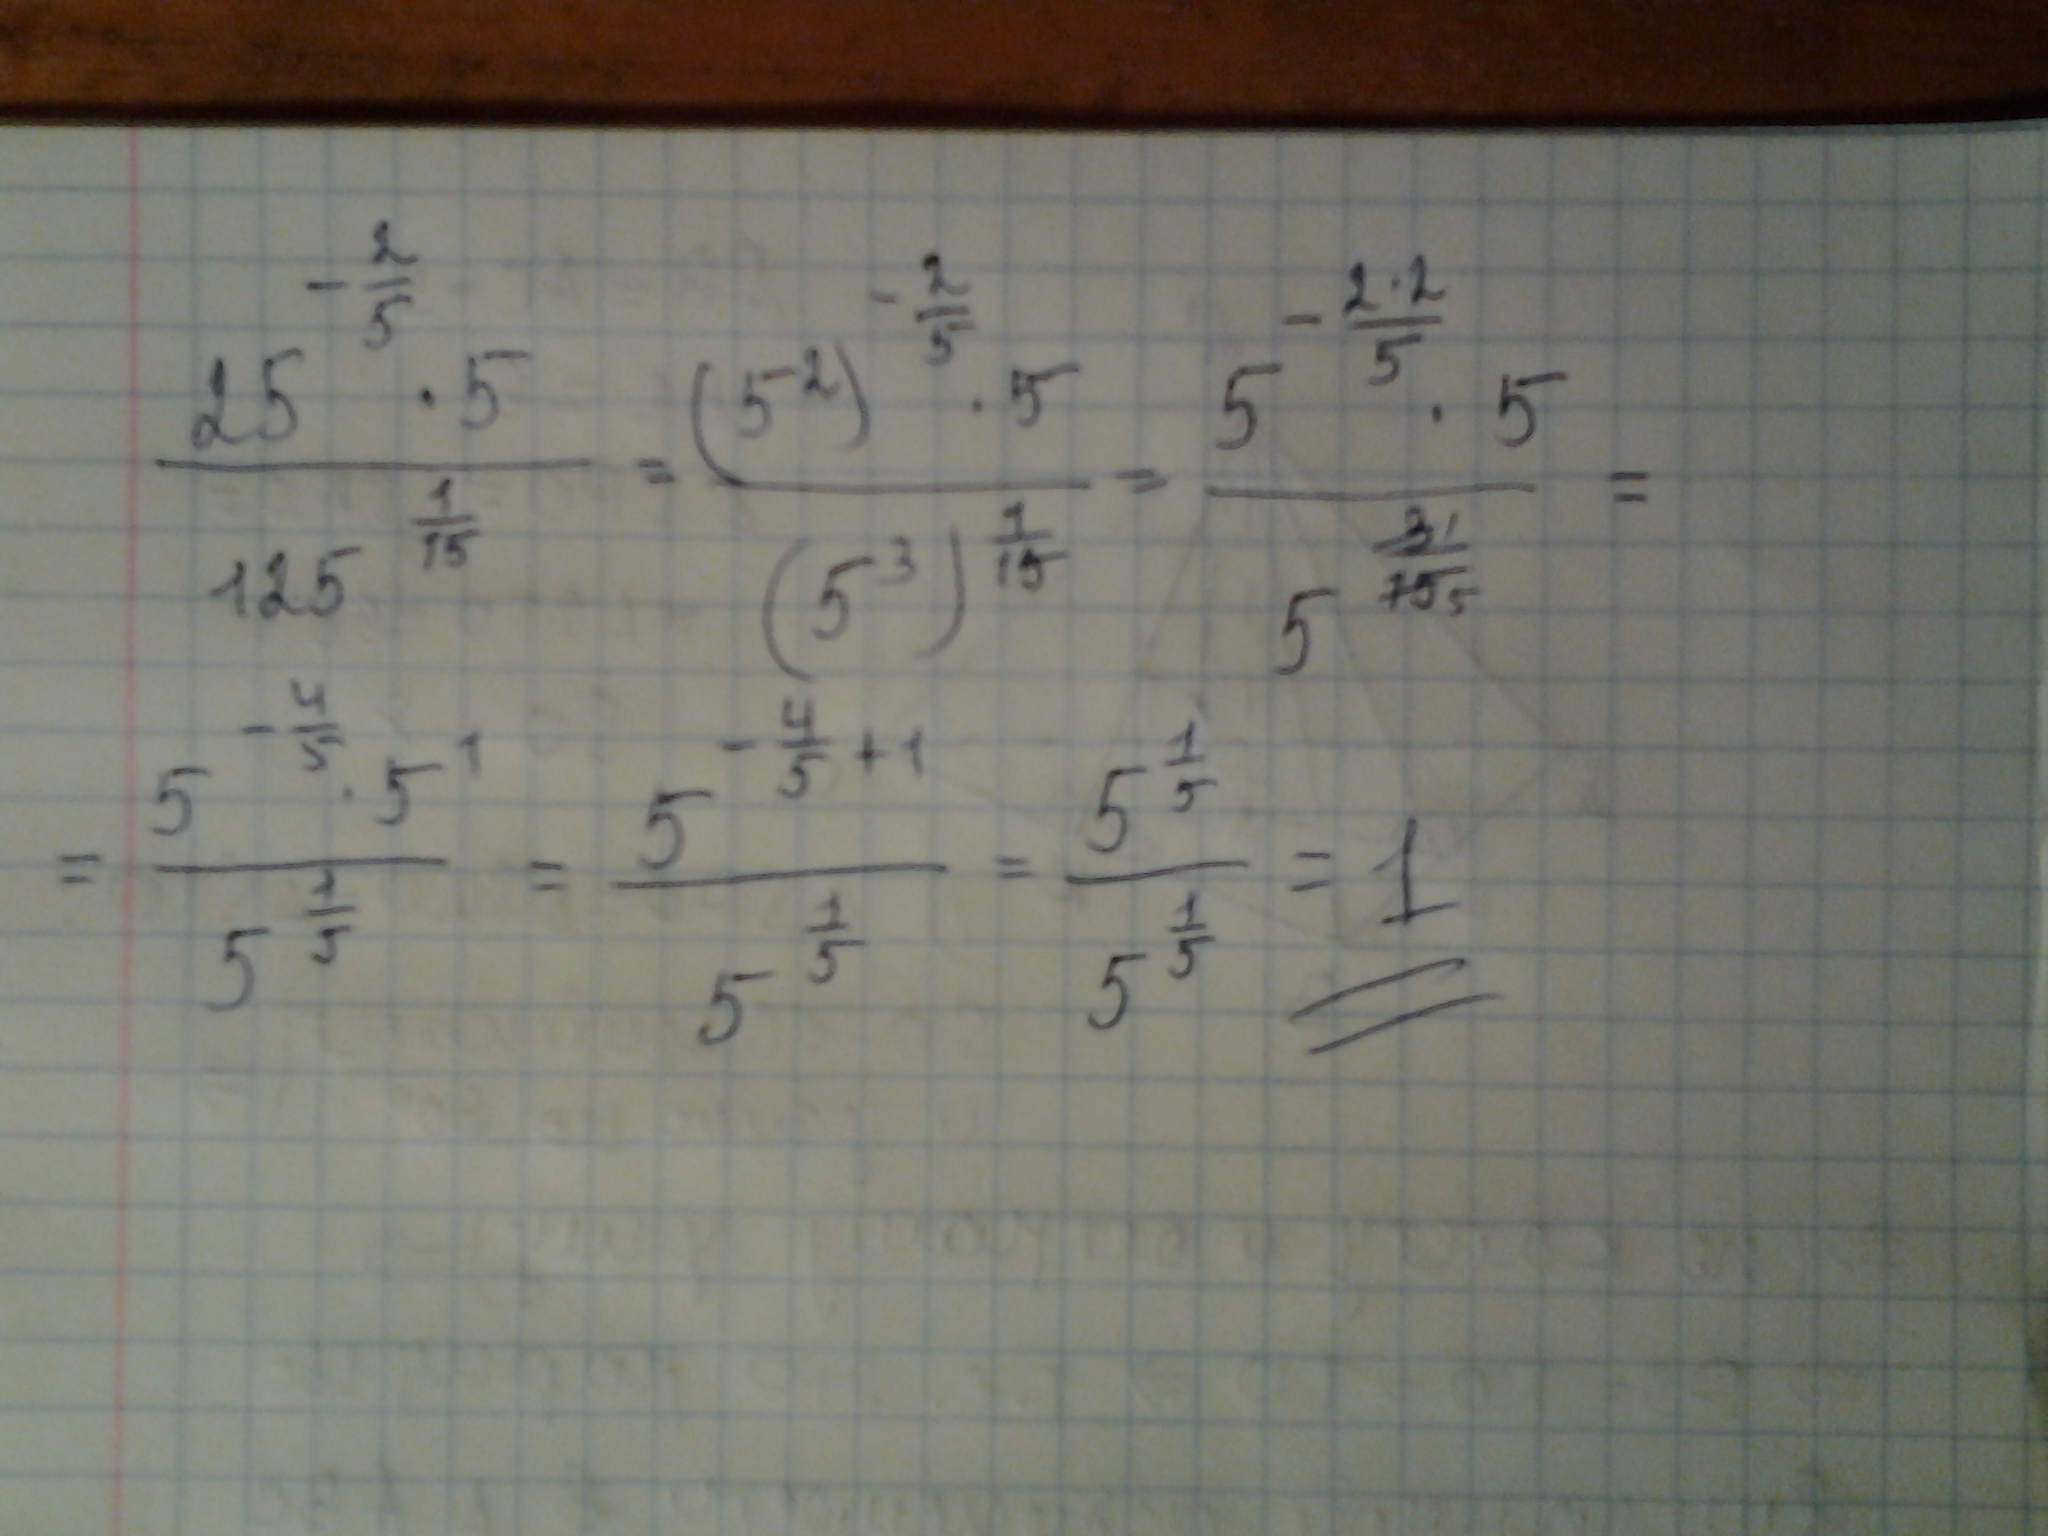 \frac{25^{-\frac{2}{5}} \cdot 5}{125^{\frac{1}{15}}} = \frac{(5^2)^{-\frac{2}{5}} \cdot 5}{(5^3)^{\frac{1}{15}}} = \frac{5^{-\frac{2 \cdot 2}{5}} \cdot 5}{5^{\frac{\cancel{3}1}{\cancel{15}5}}} =
= \frac{5^{-\frac{4}{5}} \cdot 5^1}{5^{\frac{1}{5}}} = \frac{5^{-\frac{4}{5}+1}}{5^{\frac{1}{5}}} = \frac{5^{\frac{1}{5}}}{5^{\frac{1}{5}}} = 1